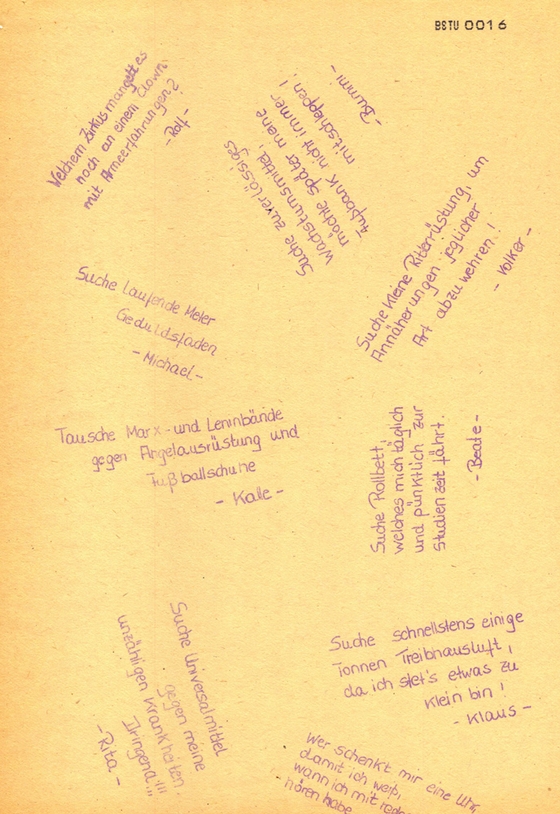 BSTU 0016
Welchem Zirkus mangelt es
noch an einem Clown
mit Armeeerfahrungen?
-Ralf-
Suche zuverlässiges
Wachstumsmittel,
möchte später meine
Fußbank nicht immer
mitschleppen!
-Bummi-
Suche kleine Ritterrüstung, um
Annäherungen jeglicher
Art abzuwehren!
- Volker -
Suche laufende Meter
Geduldsfaden
- Michael -
Tausche Marx- und Leninbände
gegen Angelausrüstung und
Fußballschuhe
- Kalle -
Suche Rollbett,
welches mich täglich
und pünktlich zur
Studienzeit fährt.
- Beate -
Suche Universalmittel
gegen meine
unzähligen Krankheiten.
Dringend!!!
-Rita.-
Suche schnellstens einige
Tonnen Treibhausluft,
da ich stet's etwas zu
klein bin!
- Klaus -
Wer schenkt mir eine Uhr,
damit ich weiß,
wann ich mit reden
hören habe